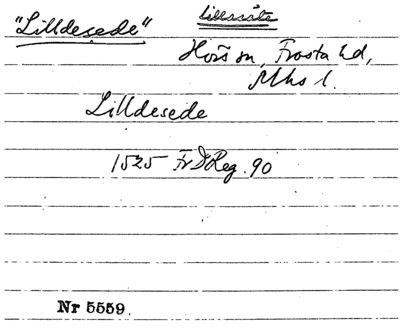 "Lilldesede" Lillasäte
Hörs sn, Frosta hd,
Mhs l.
Lilldesede
1525 Fr I Reg. 90
Nr 5559.